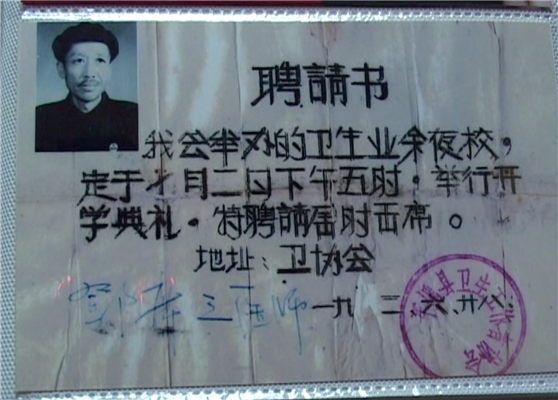 聘請书
我会举办的卫生业余夜校，
定于 月二日下午五时，举行开
学典礼。特聘請届时西席。
地址：卫协会
三医师 一九 二 六、廿八.
县卫生